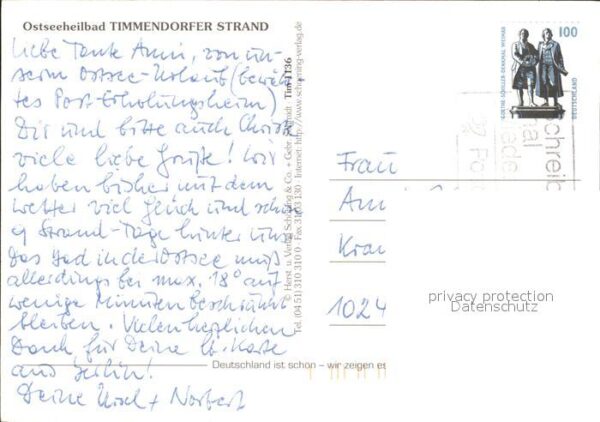 Ostseeheilbad TIMMENDORFER STRAND
Liebe Tante Anni, von un-
serm Ostsee-Urlaub (bewähr-
tes Post-Erholungsheim)
Dir und bitte auch Christa
viele liebe Grüße! Wir
haben bisher mit dem
Wetter viel Glück und schon
9 Strand-Tage hinter uns.
Das Bad in der Ostsee muß
allerdings bei max. 18° auf
wenige Minuten beschränkt
bleiben. Vielen herzlichen
Dank für Deine lb. Karte
aus Berlin!
Deine Ursel + Norbert
© Herst. u. Verlag Schöning & Co. + Gebr. Schmidt Tim 1136
Tel. (04 51) 310 310 0 - Fax 310 3 130 - Internet: http://www.schoening-verlag.de
Deutschland ist schön – wir zeigen es
100
GOETHE-SCHILLER-DENKMAL WEIMAR
DEUTSCHLAND
Schreib
mal
wieder
Frau
Ann
Kran
1024
privacy protection
Datenschutz